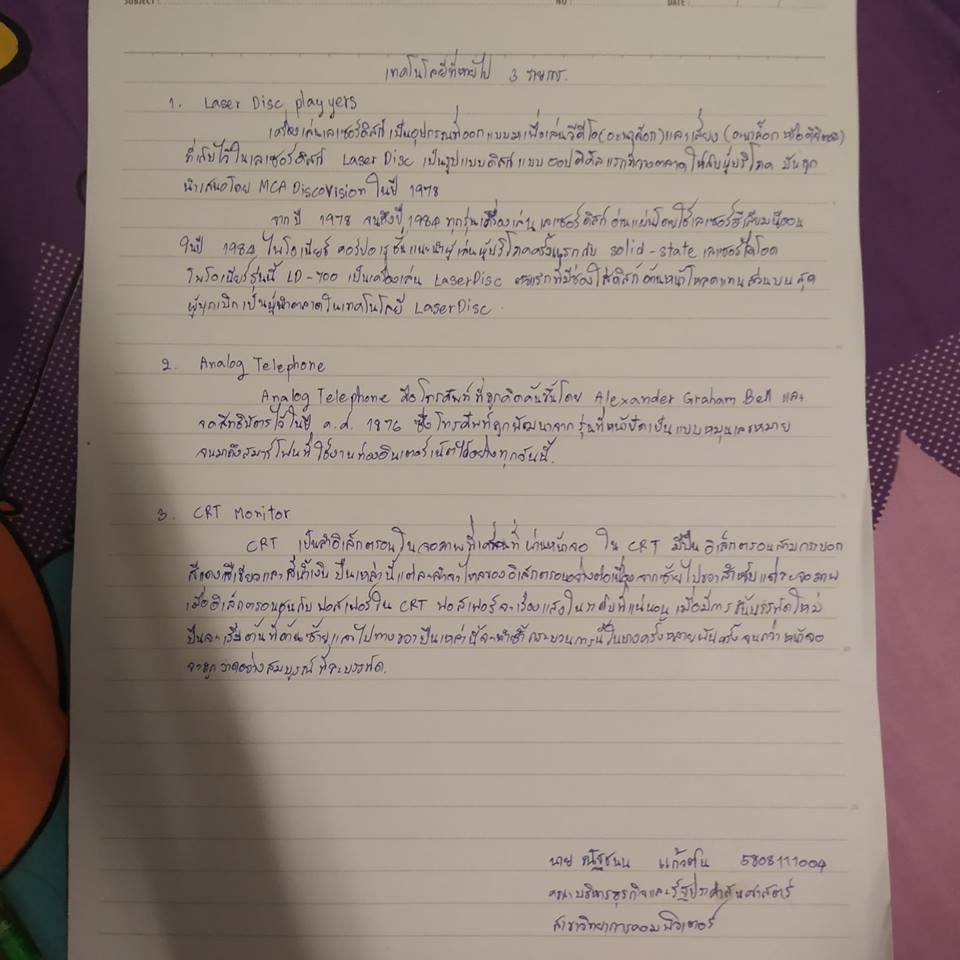 SUBJECT : NO : DATE :
เทคโนโลยีที่หายไป 3 รายการ.
1. Laser Disc playyers
เครื่องเล่นเลเซอร์ดิสก์ เป็นอุปกรณ์ที่ออกแบบมาเพื่อเล่นวีดีโอ(อะนาล็อก)และเสียง (อะนาล็อก หรือดิจิตอล)
ที่เก็บไว้ในเลเซอร์ดิสก์ Laser Disc เป็นรูปแบบดิสก์ แบบ ออปติคัลแรกที่วางตลาด ให้กับผู้บริโภค มันถูก
นำเสนอโดย MCA DiscoVision ในปี 1978
จาก ปี 1978 จนถึงปี 1984 ทุกรุ่นเครื่องเล่น เลเซอร์ดิสก์ อ่านแผ่นโดยใช้เลเซอร์ฮีเลียมนีออน
ในปี 1984 ไพโอเนียร์ คอร์ปอเรชั่นแนะนำผู้เล่นผู้บริโภคครั้งแรกกับ solid-state เลเซอร์ไดโอด
ไพโอเนียร์รุ่นนี้ LD-700 เป็นเครื่องเล่น LaserDisc ตัวแรกที่มีช่องใส่ดิสก์ ด้านหน้าโหลดแทนส่วนบนสุด
ผู้บุกเบิกเป็นผู้นำตลาดในเทคโนโลยี LaserDisc.
2. Analog Telephone
Analog Telephone คือโทรศัพท์ที่ถูกคิดค้นขึ้นโดย Alexander Graham Bell และ
จดสิทธิบัตรไว้ในปี ค.ศ. 1876 ซึ่งโทรศัพท์ถูกพัฒนาจาก รุ่นที่หน้าปัดเป็นแบบหมุนเลขหมาย
จนมาถึงสมาร์โฟนที่ใช้งานท่องอินเตอร์เน็ตได้อย่างทุกวันนี้.
3. CRT Monitor
CRT เป็นลำอิเล็กตรอนในจอภาพที่เคลื่อนที่ ผ่านหน้าจอ ใน CRT มีปืนอิเล็กตรอนสามกระบอก
สีแดงสีเขียวและสีน้ำเงิน ปืนเหล่านี้แต่ละลำจะไหลของอิเล็กตรอนอย่างต่อเนื่องจากซ้ายไปขวาสำหรับแต่ละจอภาพ
เมื่ออิเล็กตรอนชนกับฟอสเฟอร์ใน CRT ฟอสเฟอร์จะเรืองแสงในระดับที่แน่นอน เมื่อมีการ บรรทัดใหม่
ปืนจะเริ่มต้นที่ด้านซ้ายและไปทางขวาปืนเหล่านี้จะทำซ้ำกระบวนการนี้ในบางครั้งหลายพันครั้งจนกว่าหน้าจอ
จะถูกวาดอย่างสมบูรณ์ทีละบรรทัด.
นาย ณัฐชนน 5808111004
คณะบริหารธุรกิจและรัฐประศาสนศาสตร์
สาขาวิทยาการคอมพิวเตอร์